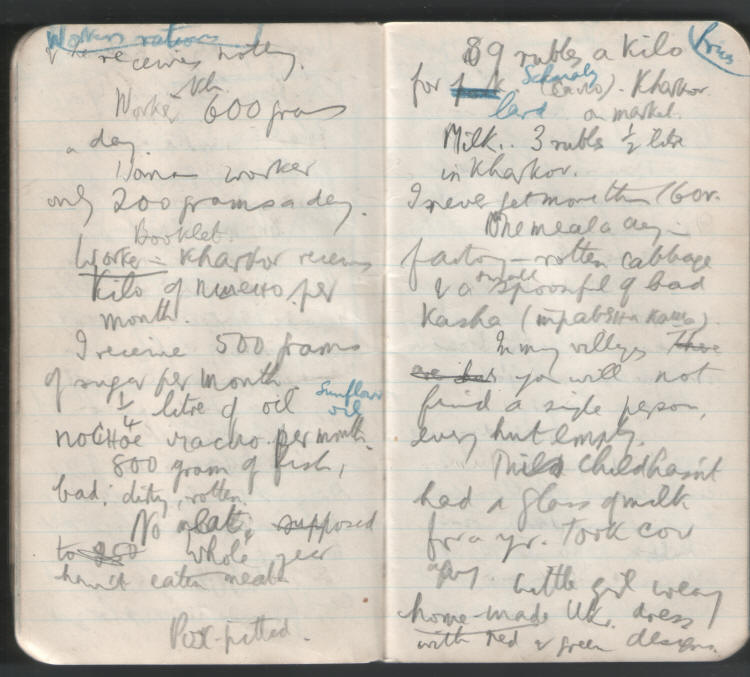 Workers rations
receives nothing.
Worker Kh. 600 grams
a day.
worker
only 200 grams a day.
Booklet.
Worker = Kharkov receives
kilo of per
month.
I receive 500 grams
of sugar per month.
1/4 litre of oil Sunflower oil
постное масло per month.
800 gram of fish,
bad, dirty, rotten.
No meat, supposed
to whole year
haven't eaten meat
Pox-pitted.
Prices
89 rubles a kilo
for Schmalz (сало). Kharkov
lard on market.
Milk.. 3 rubles 1/2 litre
in Kharkov.
I never get more than 160r.
One meal a day –
factory – rotten cabbage
& a small spoonful of bad
Kasha ( каша).
In my villages There
are you will not
find a single person,
every hut empty.
This child hasn't
had a glass of milk
for a yr. Took cow
away. Little girl wears
home-made Ukr. dress
with red & green designs.